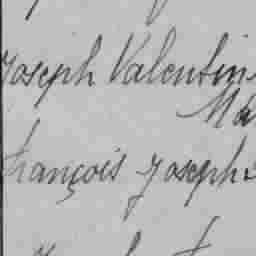 Joseph Valentin
Ma
François Joseph